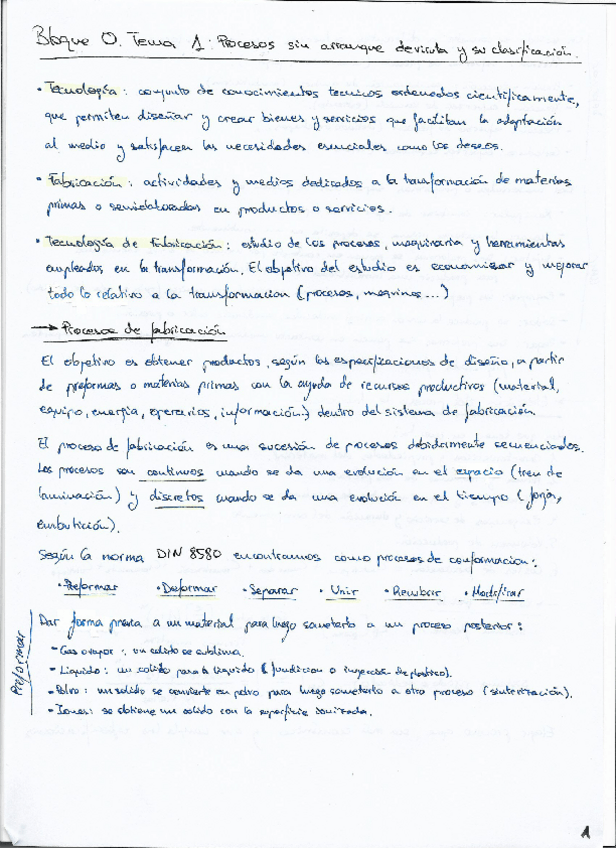 Bloque 0. Tema 1: Procesos sin arranque de viruta y su clasificación.
• Tecnología: conjunto de conocimientos tecnicos ordenados científicamente,
que permiten diseñar y crear bienes y servicios que facilitan la adaptación
al medio y satisfacen las necesidades esenciales como los deseos.
• Fabricación: actividades y medios dedicados a la transformación de materias
primas o semielaboradas en productos o servicios.
• Tecnología de fabricación: estudio de los procesos, maquinaria y herramientas
empleados en la transformación. El objetivo del estudio es economizar y mejorar
todo lo relativo a la transformacion (procesos, maquinas...)
→ Procesos de fabricación
El objetivo es obtener productos, según las especificaciones de diseño, a partir
de preformas o materias primas con la ayuda de recursos productivos (material,
equipo, energia, operarios, información) dentro del sistema de fabricación.
El proceso de fabricación es una sucesión de procesos debidamente secuenciados.
Los procesos son continuos cuando se da una evolución en el espacio (tren de
laminación) y discretos cuando se da una evolución en el tiempo (forja,
embutición).
Según la norma DIN 8580 encontramos como procesos de conformacion:
• Preformar • Deformar • Separar • Unir • Recubrir • Modificar
Preformar
Dar forma previa a un material para luego someterlo a un proceso posterior:
- Gas o vapor: un solido se sublima.
- Liquido: un solido pasa a liquido (fundicion o inyección de plastico).
- Polvo: un solido se convierte en polvo para luego someterlo a otro proceso (sinterización).
- Iones: se obtiene un solido con la superficie ionizada.
1